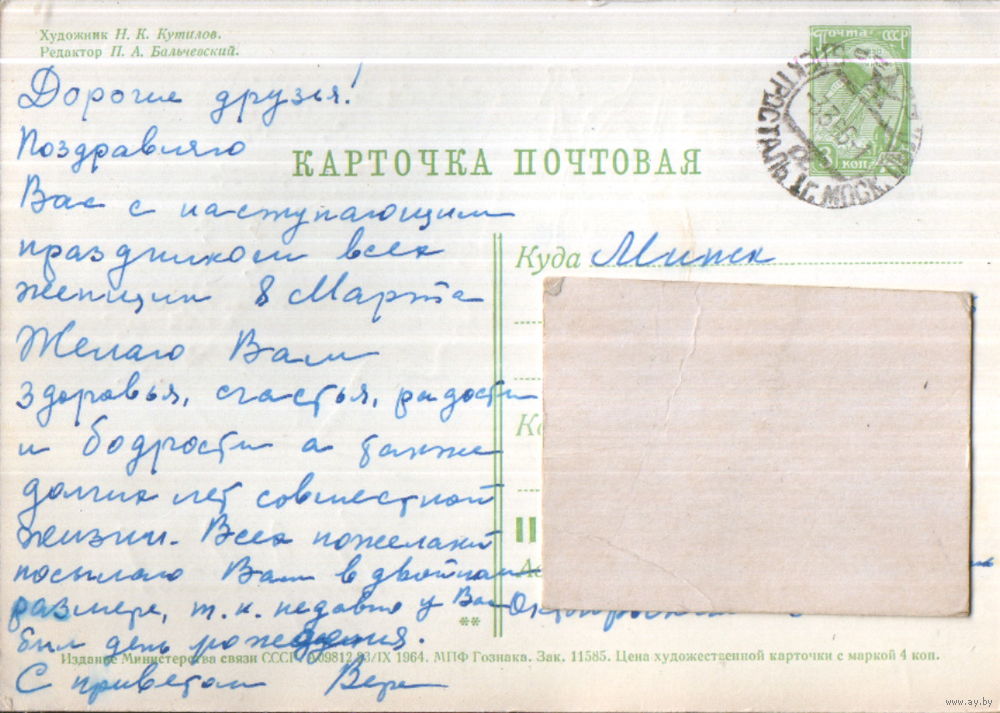 Художник Н. К. Кутилов.
Редактор П. А. Бальчевский.
Почта СССР
3 коп
ЭЛЕКТРОСТАЛЬ 1 Г. МОСК.
КАРТОЧКА ПОЧТОВАЯ
Дорогие друзья!
Поздравляю
Вас с наступающим
праздником всех
женщин 8 Марта
Желаю Вам
здоровья, счастья, радости
и бодрости а также
долгих лет совместной
жизни. Всех пожеланий
посылаю Вам в двойном
размере, т. к. недавно у Вас
был день рождения.
С приветом Вера
Куда Минск
**
Издание Министерства связи СССР. А09812 23/IX 1964. МПФ Гознака. Зак. 11585. Цена художественной карточки с маркой 4 коп.
www.ay.by